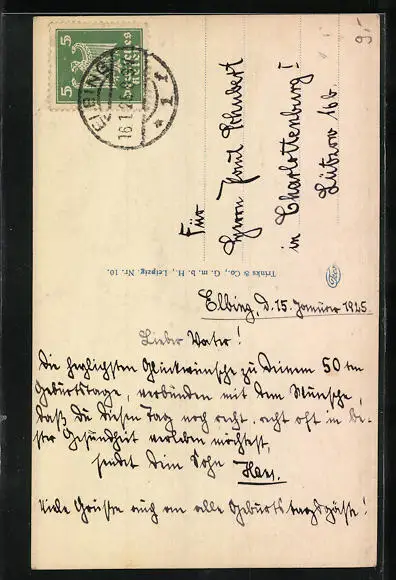 9.-
Deutsches Reich
5 5
ELBING
16.1.
* 1 1
Für
Herrn Paul Schubert
in Charlottenburg I
Lützow 16b.
Trinks & Co., G. m. b. H., Leipzig. Nr. 10.
Elbing, d. 15. Januar 1925
Lieber Vater!
Die herzlichsten Glückwünsche zu Deinem 50 ten
Geburtstage, verbunden mit dem Wunsche,
daß Du diesen Tag noch recht, recht oft in be-
ster Gesundheit verleben möchtest,
sendet Dein Sohn
Hans.
Viele Grüße auch an alle Geburtstagsgäste!